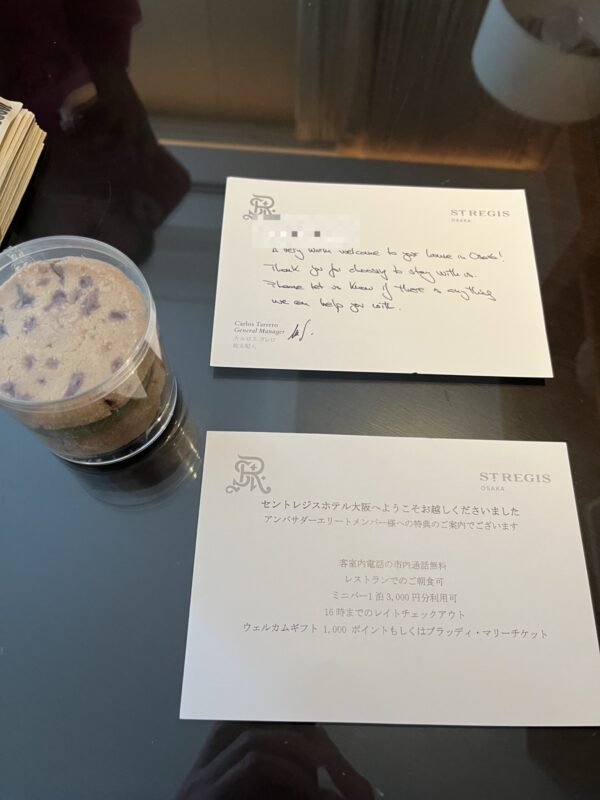 ST REGIS
OSAKA
A very warm welcome to your home in Osaka!
Thank you for choosing to stay with us.
Please let us know if there is anything
we can help you with.
Carlos Tarrero
General Manager
カルロス タレロ
総支配人
ST REGIS
OSAKA
セントレジスホテル大阪へようこそお越しくださいました
アンバサダーエリートメンバー様への特典のご案内でございます
客室内電話の市内通話無料
レストランでのご朝食可
ミニバー1泊3,000円分利用可
16時までのレイトチェックアウト
ウェルカムギフト 1,000 ポイントもしくはブラッディ・マリーチケット